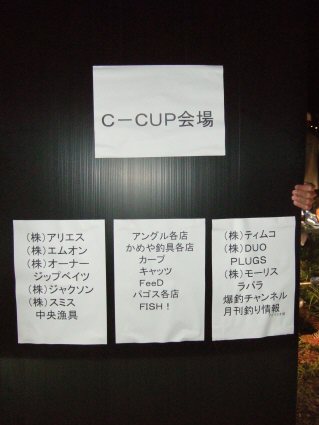 C－CUP会場
（株）アリエス
（株）エムオン
（株）オーナー
ジップベイツ
（株）ジャクソン
（株）スミス
中央漁具
アングル各店
かめや釣具各店
カープ
キャッツ
FeeD
パゴス各店
FISH！
（株）ティムコ
（株）DUO
PLUGS
（株）モーリス
ラパラ
爆釣チャンネル
月刊釣り情報